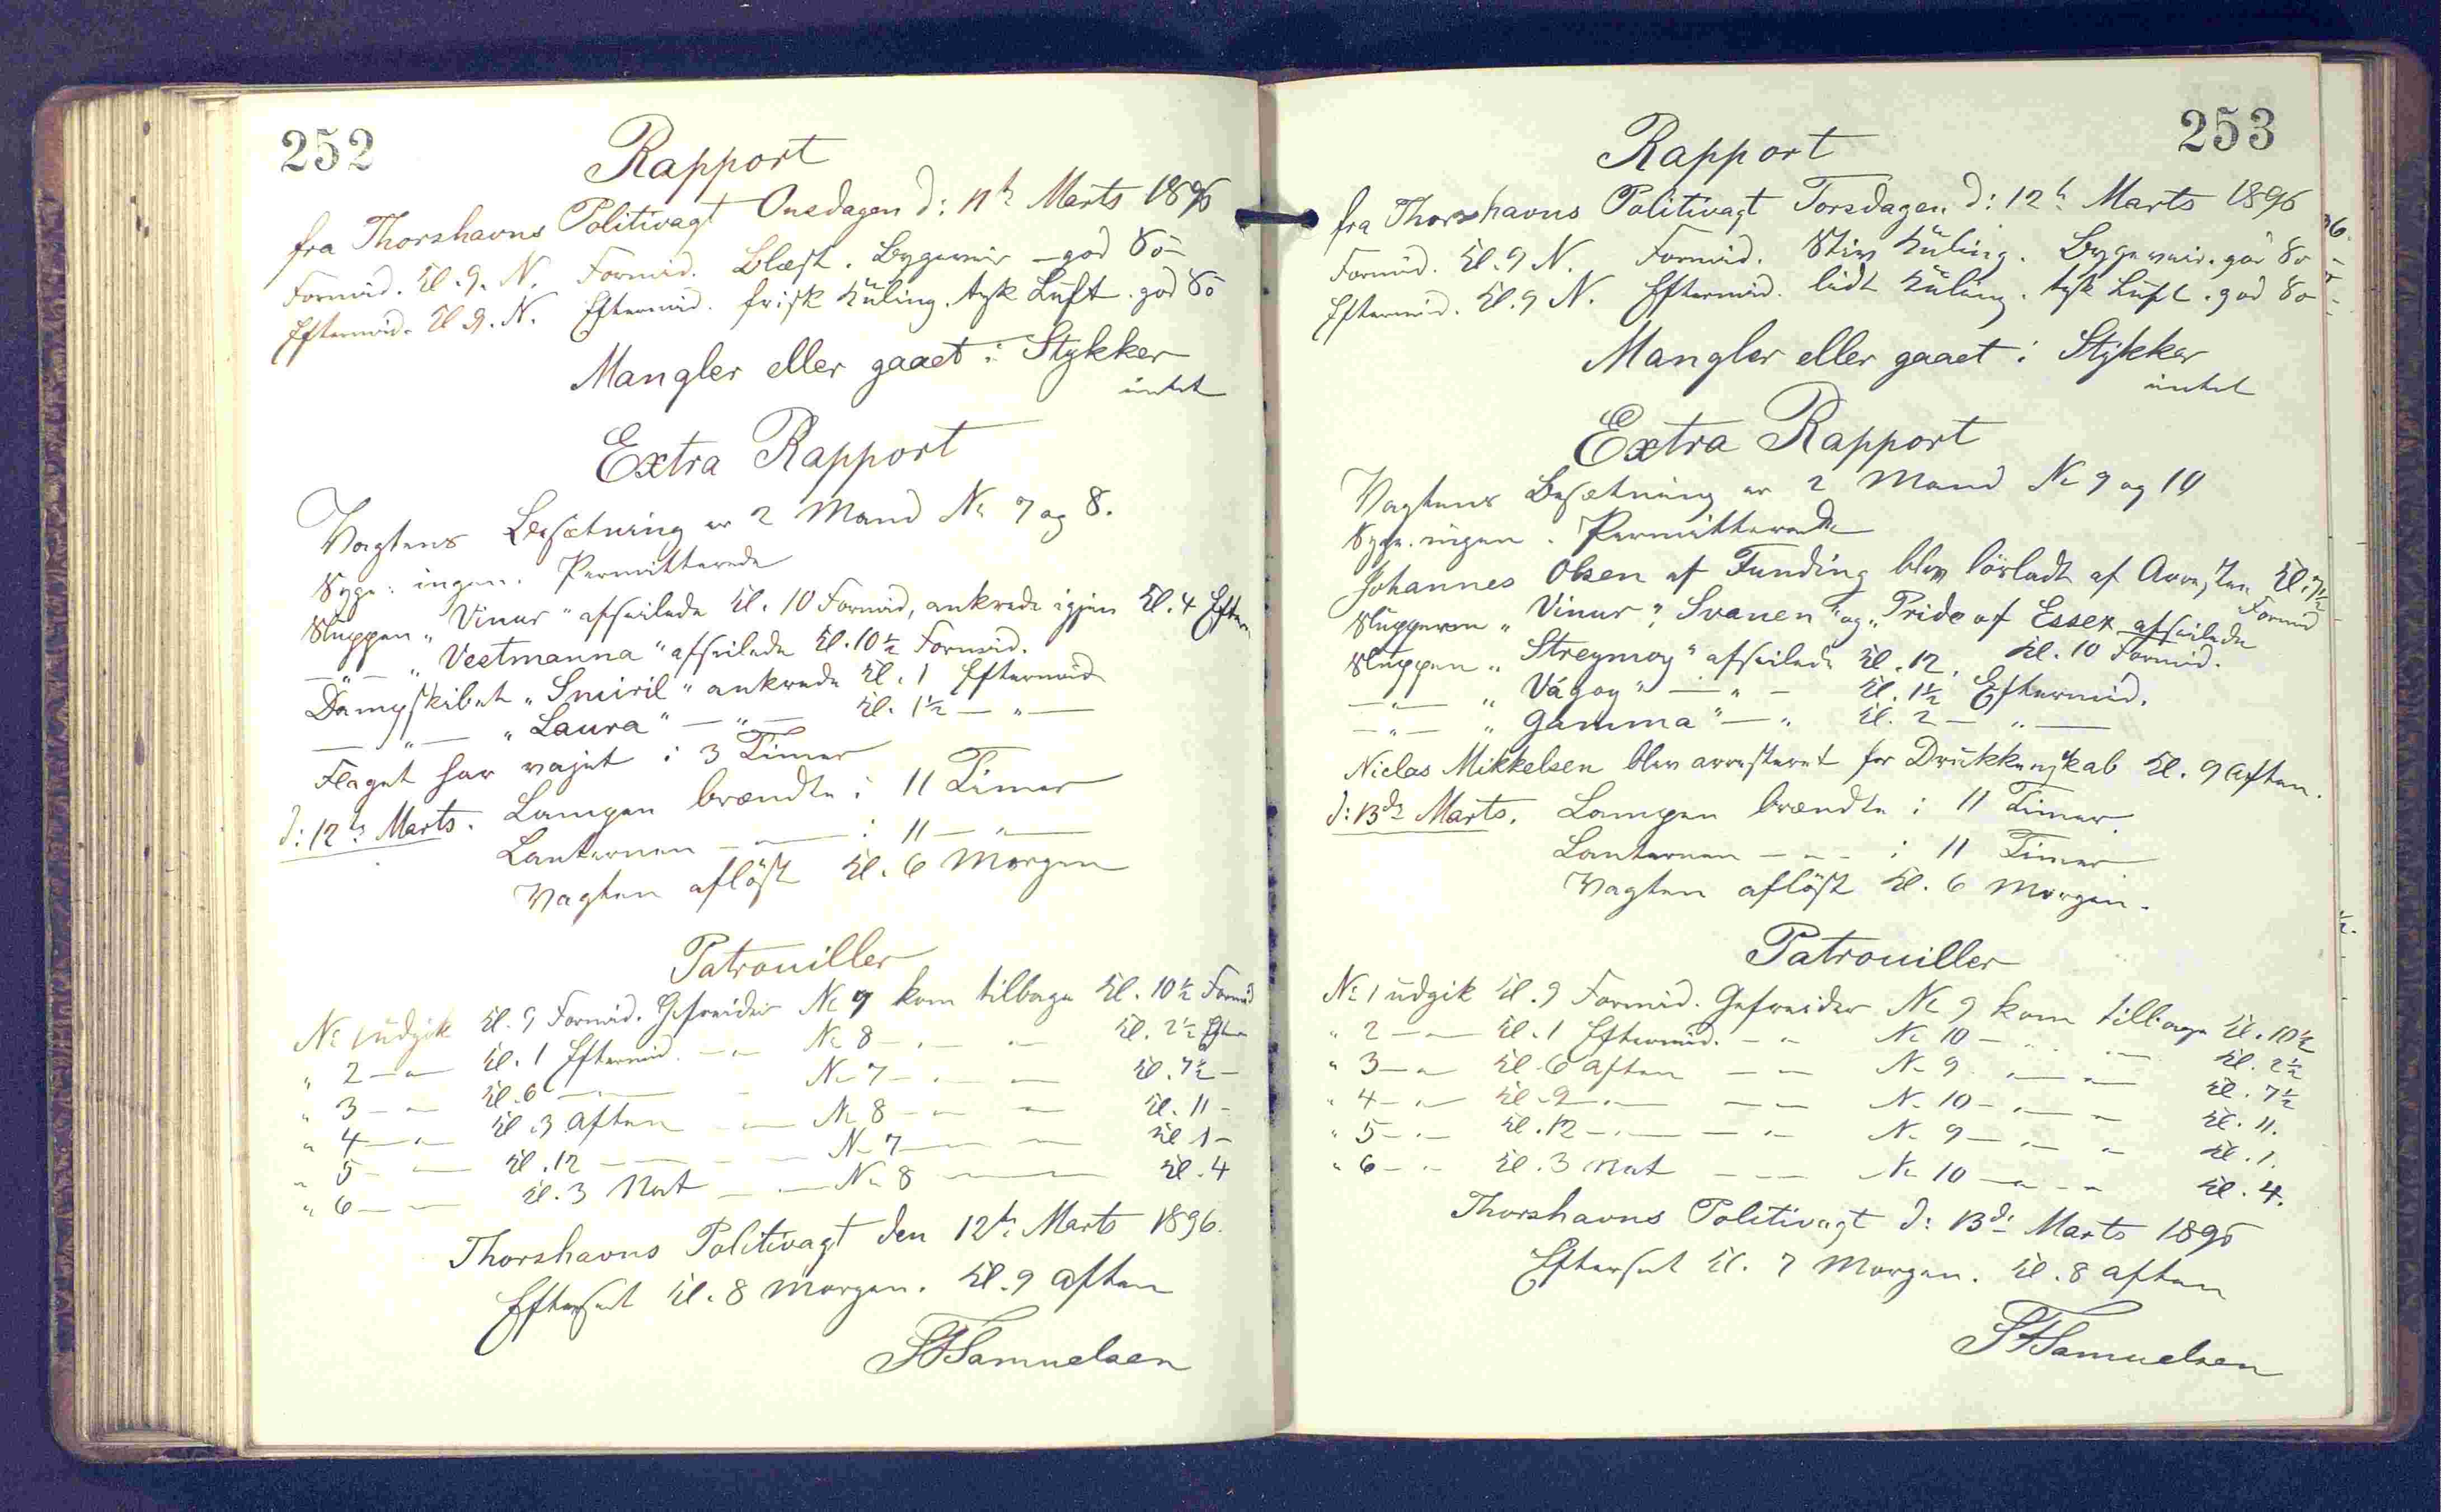 252
Rapport
fra Thorshavns Politivagt Onsdagen d: 11te Marts 1896
Formid. Kl. 9. N. Formid. Blæst. Bygeveir - god Sö
Eftermid. Kl. 9. N. Eftermid. frisk Kuling. tyk Luft. god Sö
Mangler eller gaaet i Stykker
intet
Extra Rapport
Vagtens Besætning er 2 Mand No 7 og 8.
Syge: ingen. Permitterede
Sluppen „Vinur“ afseilede Kl. 10 Formid, ankrede igjen Kl. 4 Efterm
— „ — „Vestmanna“ afseilede Kl. 10½ Formid.
Dampskibet „Smiril“ ankrede Kl. 1 Eftermid
— „ — „Laura“ — „ — Kl. 1½ — „ —
Flaget har vajet i 3 Timer
d: 12te Marts. Lampen brændte i 11 Timer
Lanternen — „ — i 11 — „ —
Vagten aflöst Kl. 6 Morgen
Patrouiller
No 1 udgik Kl. 9 Formid. Gefreider No 7 kom tilbage Kl. 10½ Formid
„ 2 — „ — Kl. 1 Eftermid. — „ No 8 — „ — „ Kl. 2½ Efterm
„ 3 — „ — Kl. 6 — „ — No 7 — „ — Kl. 7½ —
„ 4 — „ — Kl. 3 Aften — „ — No 8 — „ — Kl. 11 —
„ 5 — „ — Kl. 12 — — No 7 — — Kl. 1 —
„ 6 — „ — Kl. 3 Nat — „ — No 8 — — Kl. 4
Thorshavns Politivagt den 12te Marts 1896.
Efterset Kl. 8 Morgen. Kl. 9 Aften
Samuelsen
253
Rapport
fra Thorshavns Politivagt Torsdagen d: 12te Marts 1896
Formid. Kl. 9 N. Formid. Stiv Kuling. Bygeveir. god Sö
Eftermid. Kl. 9 N. Eftermid. lidt Kuling. tyk Luft. god Sö
Mangler eller gaaet i Stykker
intet
Extra Rapport
Vagtens Besætning er 2 Mand No 9 og 10
Syge. ingen. Permitterede
Johannes Olsen af Funding blev lösladt af Arresten Kl. 7½
Formid
Slupperne „Vinur“, „Svanen“ og „Pride of Essex afseilede
Kl. 10 Formid.
Sluppen „Streymoy“ afseilede Kl. 12.
— „ — „Vágoy“ — „ — Kl. 1½ Eftermid.
— „ — „Gamma“ — „ Kl. 2 — „ —
Niclas Mikkelsen blev arresteret for Drukkenskab Kl. 9 Aften.
d: 13de Marts. Lampen brændte i 11 Timer.
Lanternen — „ — i 11 Timer
Vagten aflöst Kl. 6 Morgen.
Patrouiller
No 1 udgik Kl. 9 Formid. Gefreider No 9 kom tilbage Kl. 10½
„ 2 — „ — Kl. 1 Eftermid. — „ No 10 — „ — Kl. 2½
„ 3 — „ Kl. 6 Aften — — No 9 — „ — Kl. 7½
„ 4 — „ — Kl. 9 — „ — — — No 10 — „ — „ Kl. 11.
„ 5 — „ — Kl. 12 — „ — — „ No 9 — „ — „ Kl. 1.
„ 6 — „ Kl. 3 Nat — — No 10 — „ — „ Kl. 4.
Thorshavns Politivagt d: 13de Marts 1896
Efterset Kl. 7 Morgen. Kl. 8 Aften
Samuelsen